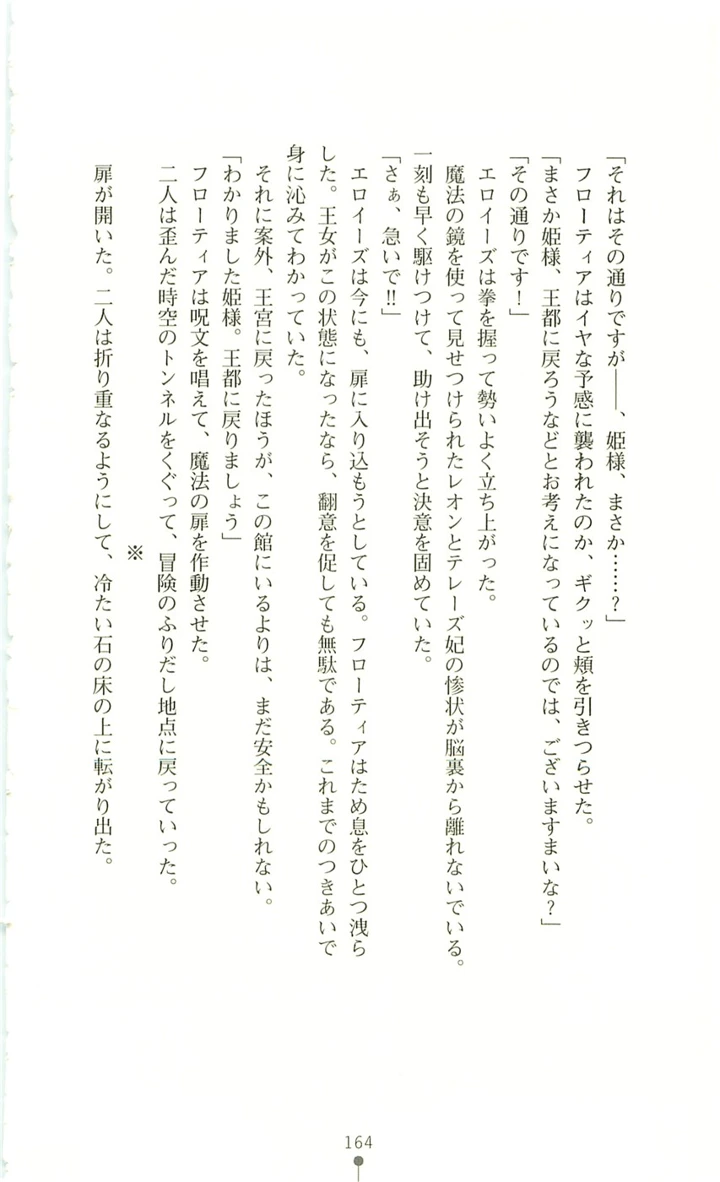 「それはその通りですが――、姫様、まさか……？」
フローティアはイヤな予感に襲われたのか、ギクッと頬を引きつらせた。
「まさか姫様、王都に戻ろうなどとお考えになっているのでは、ございますまいな？」
「その通りです！」
エロイーズは拳を握って勢いよく立ち上がった。
魔法の鏡を使って見せつけられたレオンとテレーズ妃の惨状が脳裏から離れないでいる。
一刻も早く駆けつけて、助け出そうと決意を固めていた。
「さぁ、急いで!!」
エロイーズは今にも、扉に入り込もうとしている。フローティアはため息をひとつ洩ら
した。王女がこの状態になったなら、翻意を促しても無駄である。これまでのつきあいで
身に沁みてわかっていた。
それに案外、王宮に戻ったほうが、この館にいるよりは、まだ安全かもしれない。
「わかりました姫様。王都に戻りましょう」
フローティアは呪文を唱えて、魔法の扉を作動させた。
二人は歪んだ時空のトンネルをくぐって、冒険のふりだし地点に戻っていった。
※
扉が開いた。二人は折り重なるようにして、冷たい石の床の上に転がり出た。
164